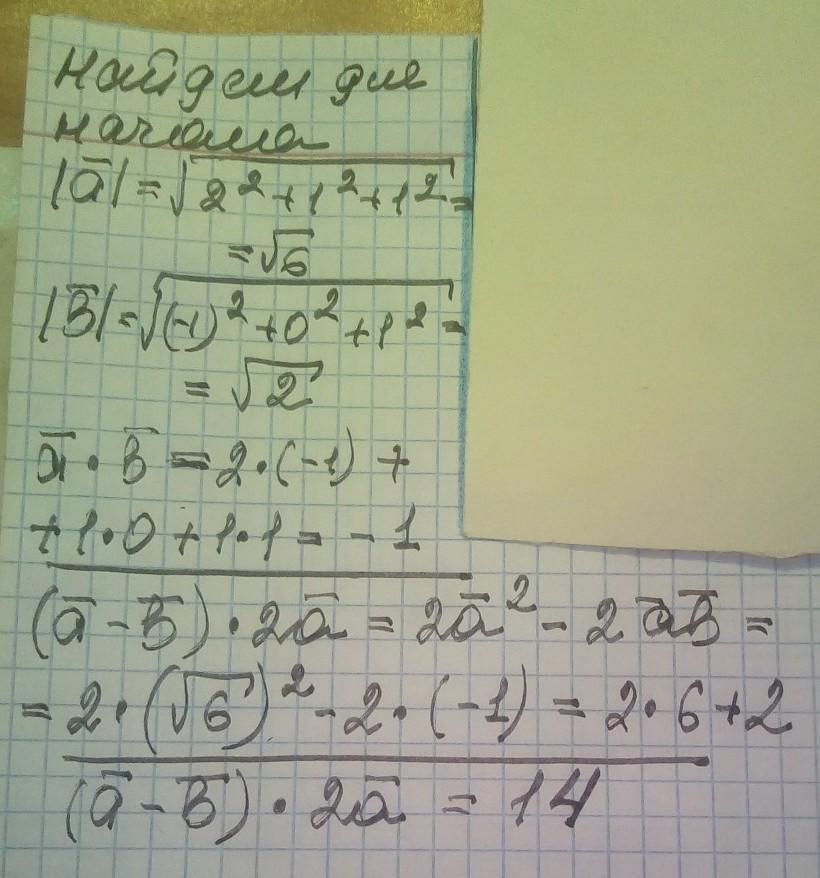 Найдем для
начала
|a̅| = √(2² + 1² + 1²) =
= √6
|B̅| = √((-1)² + 0² + 1²) =
= √2
a̅ · B̅ = 2·(-1) +
+1·0 + 1·1 = -1
(a̅ - B̅) · 2a̅ = 2a̅² - 2a̅B̅ =
= 2·(√6)² - 2·(-1) = 2·6+2
(a̅ - B̅) · 2a̅ = 14